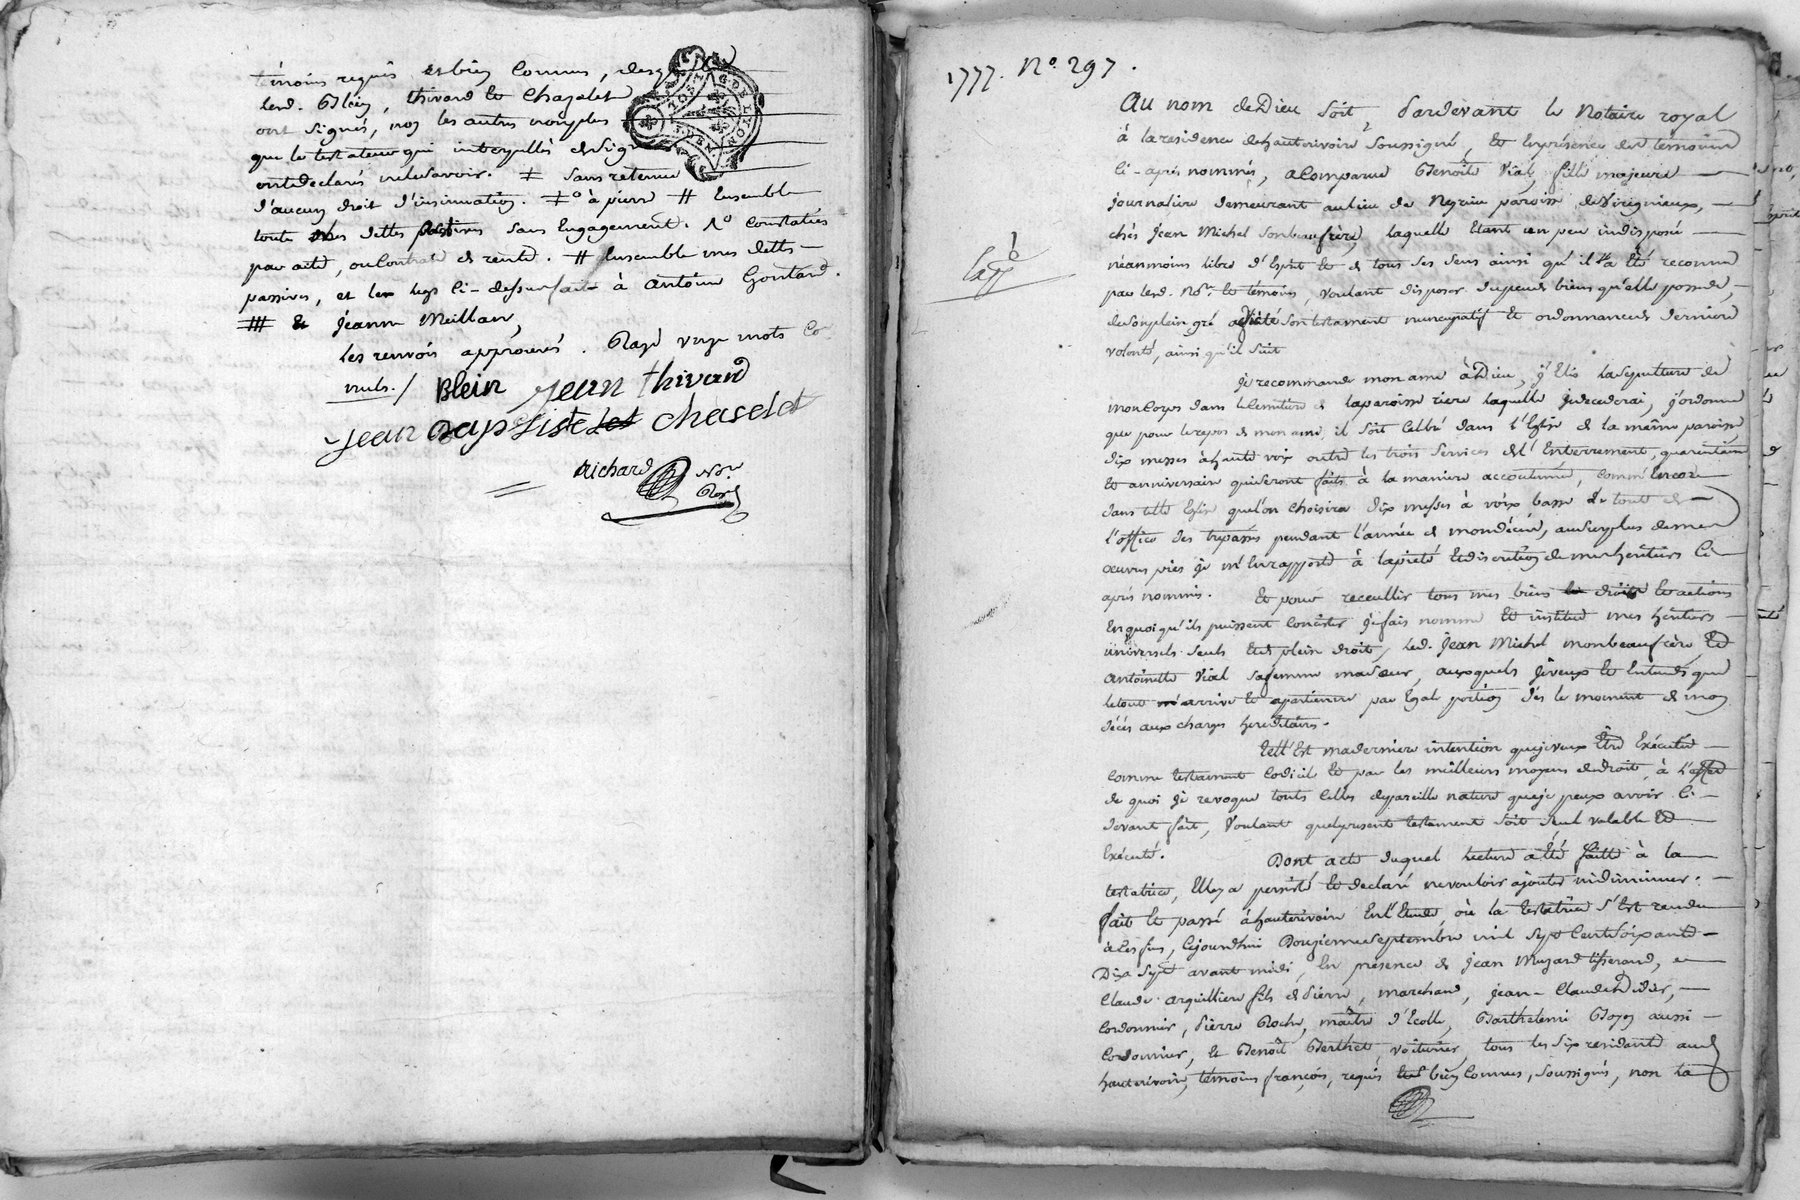 témoins requis et bien connus, desq
led. Blein, thivard et Chazelet
ont signés, non les autres non plus
que le testateur qui interpellés de sign
ont declarés ne le savoir. ‡ sans retenue
d'aucun droit d'insinuation. ‡° à pierre # Ensemble
toute mes dettes passives sans Engagement. N° constatées
par acte, ou Contrats de rente. # Ensemble mes dettes
passives, et les legs ci-dessus faits à antoine Gontard.
et jeanne Meillan,
les renvois approuvés. Rayé mots
nuls./ Blein jean thivard
jean Baptiste chaselet
Richard Nore
Roy
1777. N° 297.
Au nom de Dieu soit, Pardevant le Notaire royal
à la residence de hauterivoire soussigné, Et En présence des témoins
ci-après nommés, a Comparue Benoîte Vial, fille majeure
journaliere demeurant au lieu de Neyrieu paroisse de Virignieux,
chés jean Michel son beaufrère, laquelle Etant un peu indisposé
néanmoins libre d'Esprit Et de tous ses sens ainsi qu'il l'a Eté reconnu
par led. Nore. Et témoins, voulant disposer du peu de biens qu'elle possede,
de son plein gré a dicté son testament nuncupatif Et ordonnance de derniere
volonté, ainsi qu'il suit
1
Expp
je recommande mon ame à Dieu, j'Elis la sepulture de
mon Corps dans le Cemitiere de la paroisse riere laquelle je decederai, j'ordonne
que pour le repos de mon ame, il soit Celebré dans l'Eglise de la même paroisse
dix messes à haute voix outre les trois services de l'Enterrement, quarantaine
Et anniversaire qui seront faits à la maniere accoutumée, comm'Encore
dans telle Eglise que l'on choisira dix messes à voix basse Le tout de
l'office des trépassés pendant l'année de mon décés, au surplus de mes
œuvres pies je m'En rapporte à la pieté Et discretion de mes heritiers Ci-
après nommés. Et pour receuillir tous mes biens droits Et actions
En quoi qu'ils puissent Concister je fais nomme Et institue mes heritiers
universels seuls Et de plein droit, led. jean Michel mon beaufrère Et
antoinette Vial sa femme ma sœur, auxquels je veux Et Entends que
le tout arrive Et apartienne par Egale portion dès le moment de mon
décés aux charges hereditaires.
Tell'Est ma derniere intention que je veux Etre Exécutée
comme testament Codicile Et par les meilleurs moyens de droit, à l'effet
de quoi je revoque touts Celles de pareille nature que je peux avoir Ci-
devant fait, Voulant que le present testament soit seul valable Et
Exécuté.
Dont acte duquel lecture a Eté faitte à la
testatrice, Elle y a persisté Et declaré ne vouloir ajouter ni diminuer.
fait Et passé à hauterivoire En l'Etude où la testatrice s'Est rendue
à Ces fins, Cejourdhui Douzieme Septembre mil sept Cent soixante
Dix sept avant midi, En presence de jean Muzard tisserand,
Claude arquilliere fils de Pierre, marchand, jean-Claude Didier,
Cordonnier, Pierre Roche, maître d'Ecolle, Barthelemi Boyer aussi
Cordonnier, Et Benoît Berthet, voiturier, tous les six residants aud
hauterivoire, témoins françois, requis bien Connus, soussignés, non la